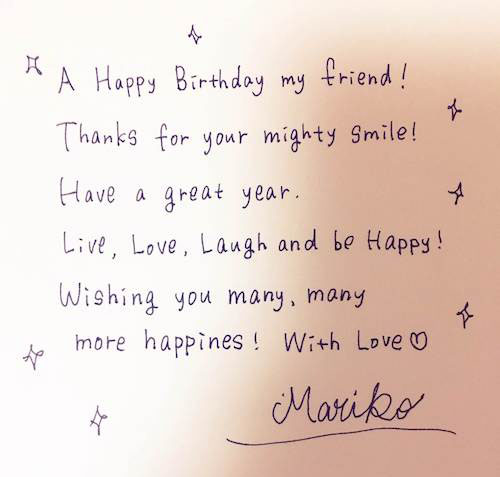 A Happy Birthday my friend!
Thanks for your mighty smile!
Have a great year.
Live, Love, Laugh and be Happy!
Wishing you many, many
more happines! With Love♡
Mariko